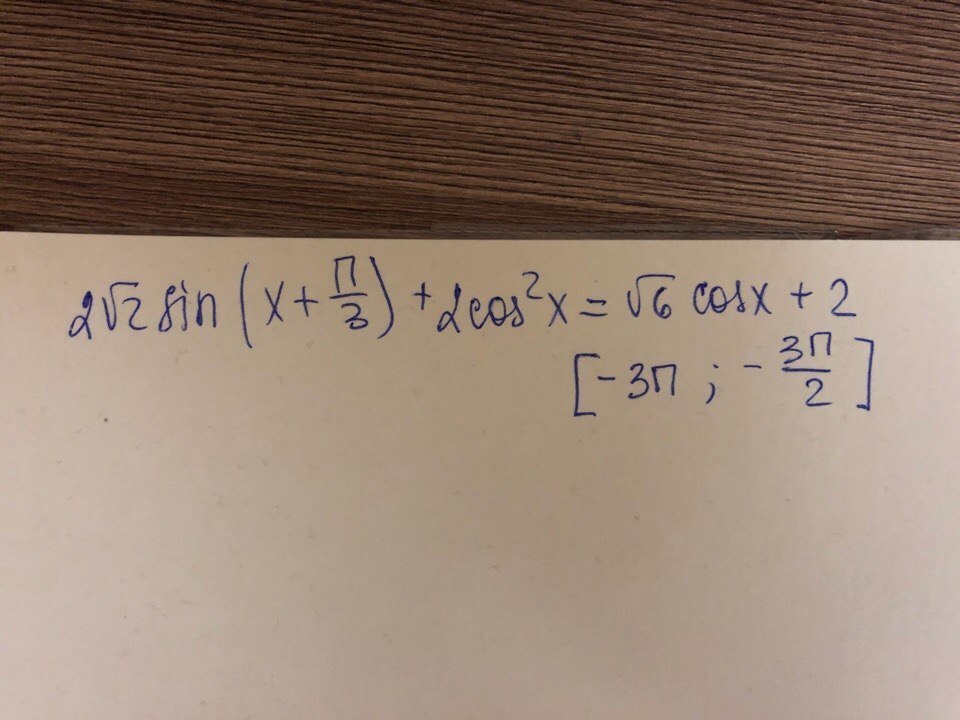 2√2 sin (x + π/3) + 2cos²x = √6 cosx + 2
[-3π ; -3π/2]